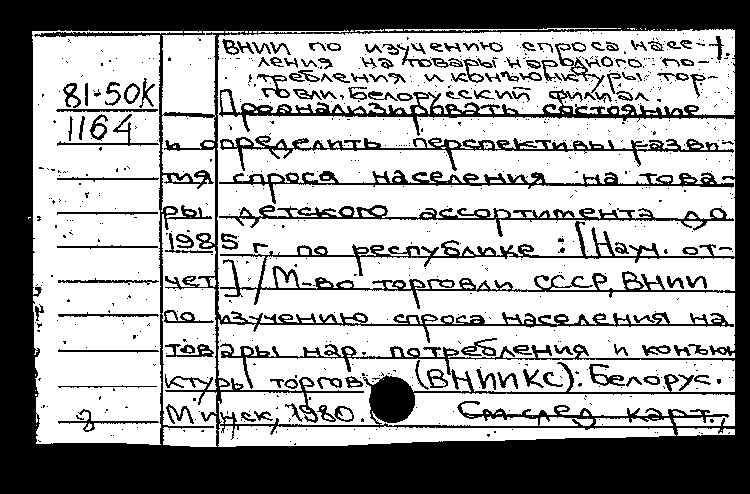 ВНИИ по изучению спроса насе- 1.
ления на товары народного по-
требления и конъюнктуры тор-
говли. Белорусский филиал.
81-50К
1164
Проанализировать состояние
и определить перспективы разви-
тия спроса населения на това-
ры детского ассортимента до
1985 г. по республике : [Науч. от-
чет] / М-во торговли СССР, ВНИИ
по изучению спроса населения на
товары нар. потребления и конъюн
ктуры торгов (ВНИИКС): Белорус.
Минск, 1980. См след карт.,